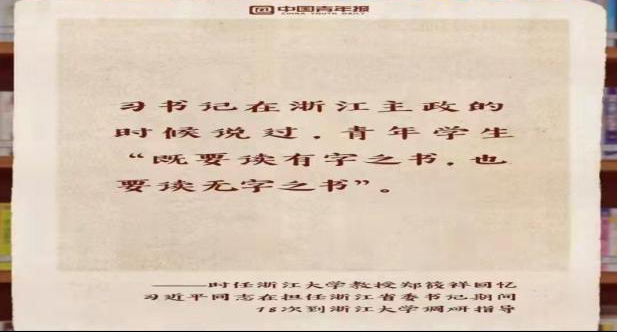 中国青年报
CHINA YOUTH DAILY
习书记在浙江主政的
时候说过，青年学生
“既要读有字之书，也
要读无字之书”。
——时任浙江大学教授郑筱祥回忆
习近平同志在担任浙江省委书记期间
18次到浙江大学调研指导